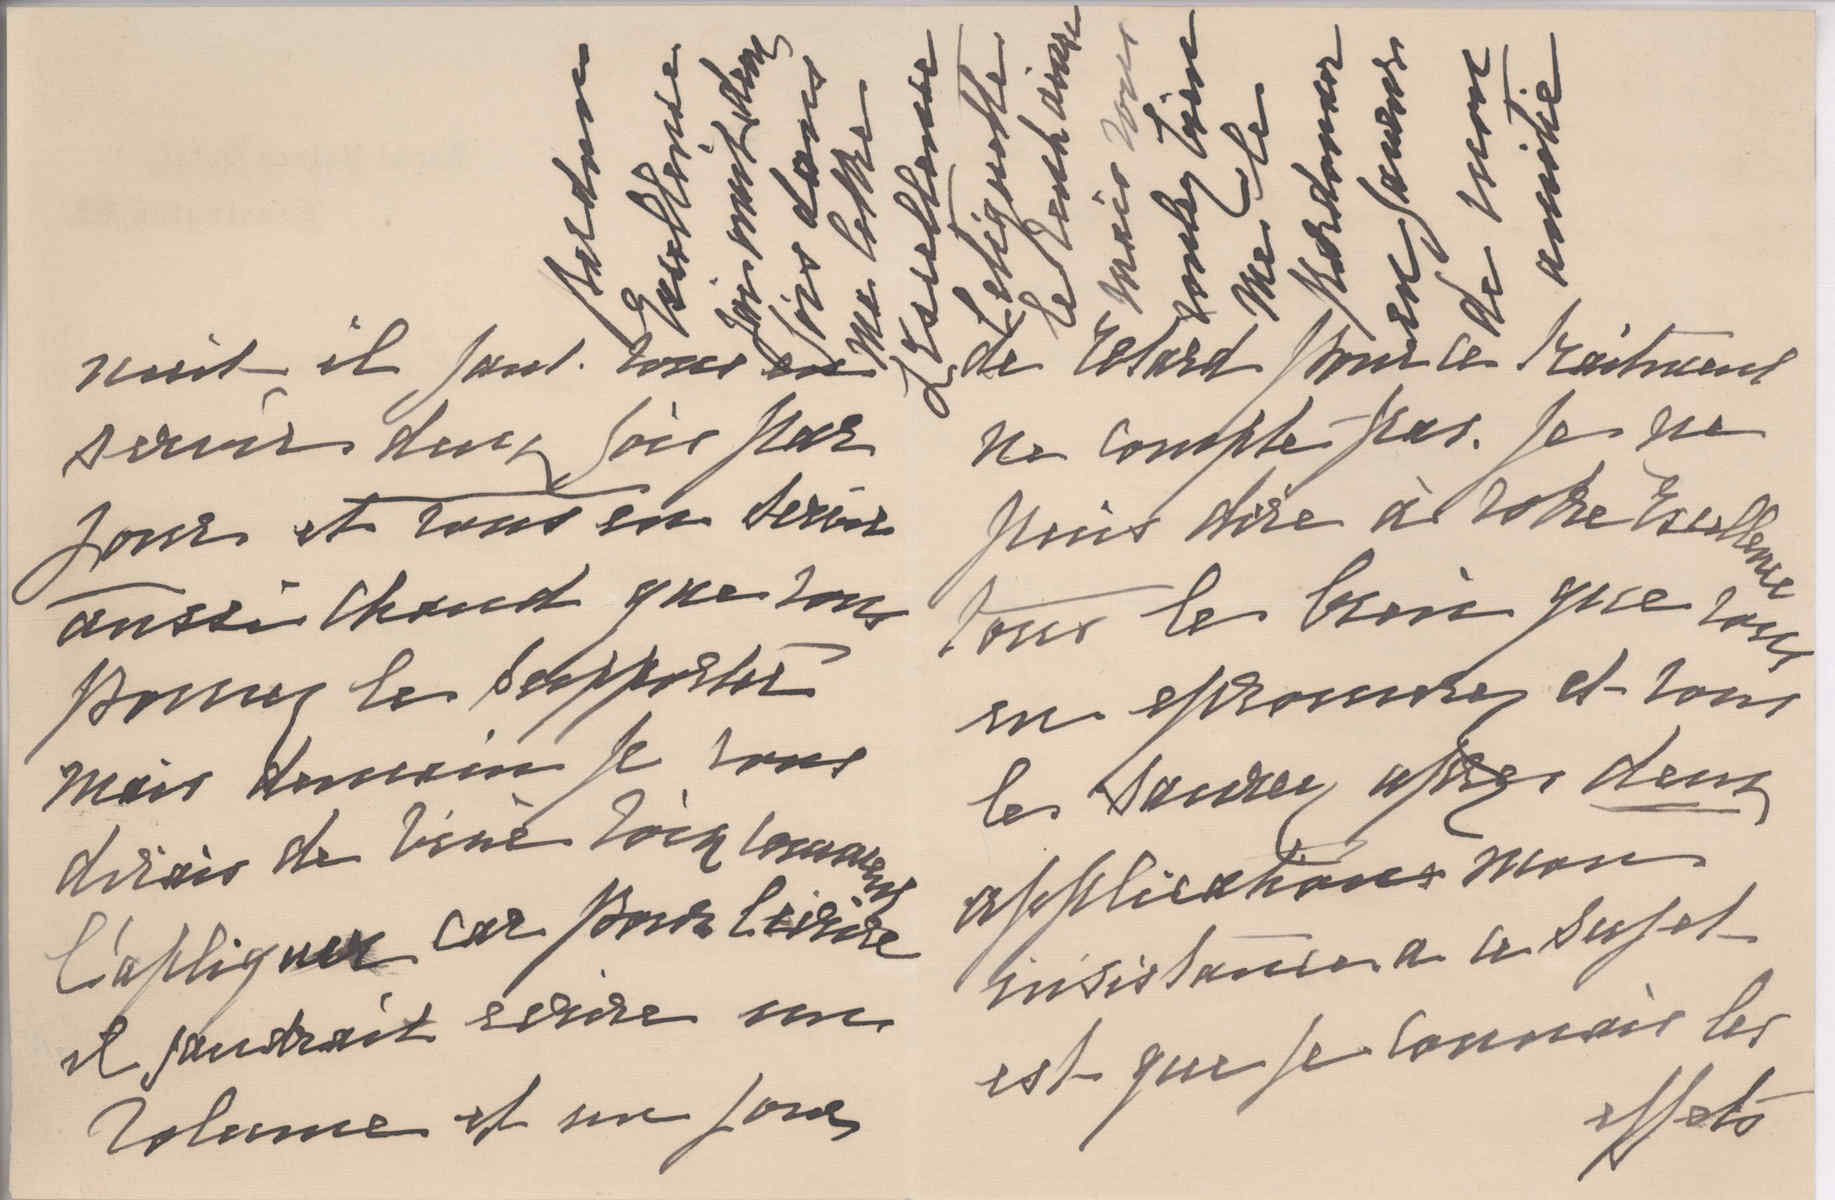 nuit il faut. vous en
servir deux fois par
jour et vous en servir
aussi chaud que vous
pouvez le supporter
mais demain je vous
dirais de vive voix comment
l'apliquer car pour l'ecrire
il faudrait ecrire un
volume et un jour
de retard pour ce traitment
ne compte pas. je ne
puis dire à votre Excellence
tous le bien que vous
en eprouvrez et vous
le saurez apres deux
applications mon
insistance a ce sujet
est que je connais les
effets
pardon
Excellence
j'ai omit
fois dans
ma lettre
L'Excellence
L'etiquette
le
mais vous
voudrez bien
me le
pardonner
en faveur
de mon
amitié